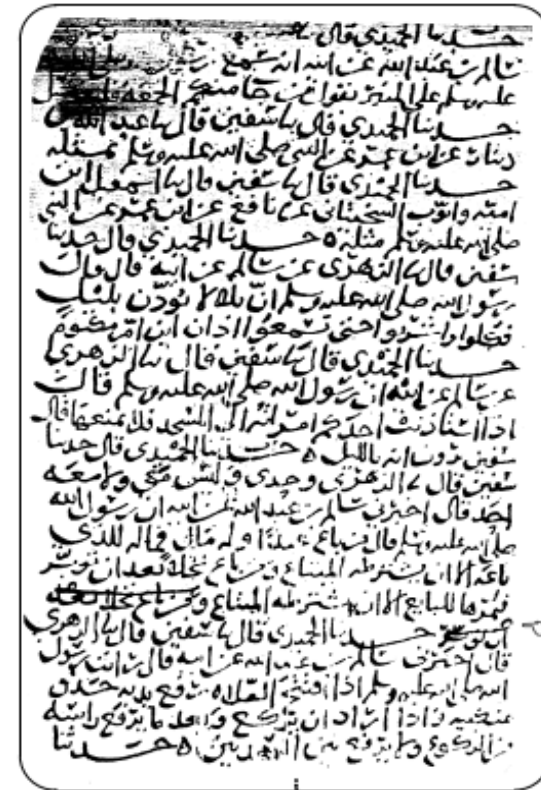 حدثنا الحميدي قال
سالم بن عبد الله عن ابيه انه سمع رسول الله صلى الله
عليه وسلم على المنبر يقول من جا منكم الجمعة فليغتسل
حدثنا الحميدي قال نا سفين قال نا عبد الله بن
دينار عن ابن عمر عن النبي صلى الله عليه وسلم بمثله
حدثنا الحميدي قال نا سفين قال نا اسمعيل ابن
امية وايوب السختياني عن نافع عن ابن عمر عن النبي
صلى الله عليه وسلم مثله ه حدثنا الحميدي قال حدثنا
سفين قال نا الزهري عن سالم عن ابيه قال قال
رسول الله صلى الله عليه وسلم ان بلالا يؤذن بليل
فكلوا واشربوا حتى تسمعوا اذان ابن ام مكتوم
حدثنا الحميدي قال نا سفين قال نا الزهري
عن سالم عن ابيه ان رسول الله صلى الله عليه وسلم قال
اذا استاذنت احدكم امراته الى المسجد فلا يمنعها قال
سفين يرون انه بالليل ه حدثنا الحميدي قال حدثنا
سفين قال نا الزهري وحدي وليس معي ولا معه
احد قال اخبرني سالم بن عبد الله عن ابيه ان رسول الله
صلى الله عليه وسلم قال من باع عبدا وله مال فماله للذي
باعه الا ان يشترطه المبتاع ومن باع نخلا بعد ان توبر
فثمرها للبايع الا ان يشترطه المبتاع ومن باع نخلا بعد
ان توبر حدثنا الحميدي قال نا سفين قال نا الزهري
قال اخبرني سالم بن عبد الله عن ابيه قال رايت رسول
الله صلى الله عليه وسلم اذا افتتح الصلاة رفع يديه حذو
منكبيه واذا اراد ان يركع وبعد ما يرفع راسه
من الركوع ولا يرفع بين السجدتين ه حدثنا